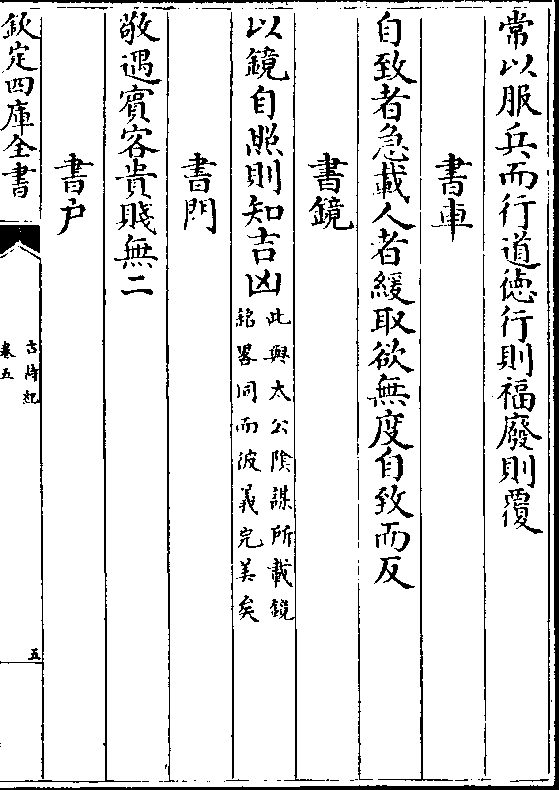 常以服兵而行道徳行則福廢則覆
書車
自致者急載人者緩取欲無度自致而反
書鏡
以鏡自照則知吉凶此與太公隂謀所載鏡
銘畧同而彼義完美矣
書門
敬遇賓客貴賤無二
書户
欽定四庫全書
古詩紀
卷五
五